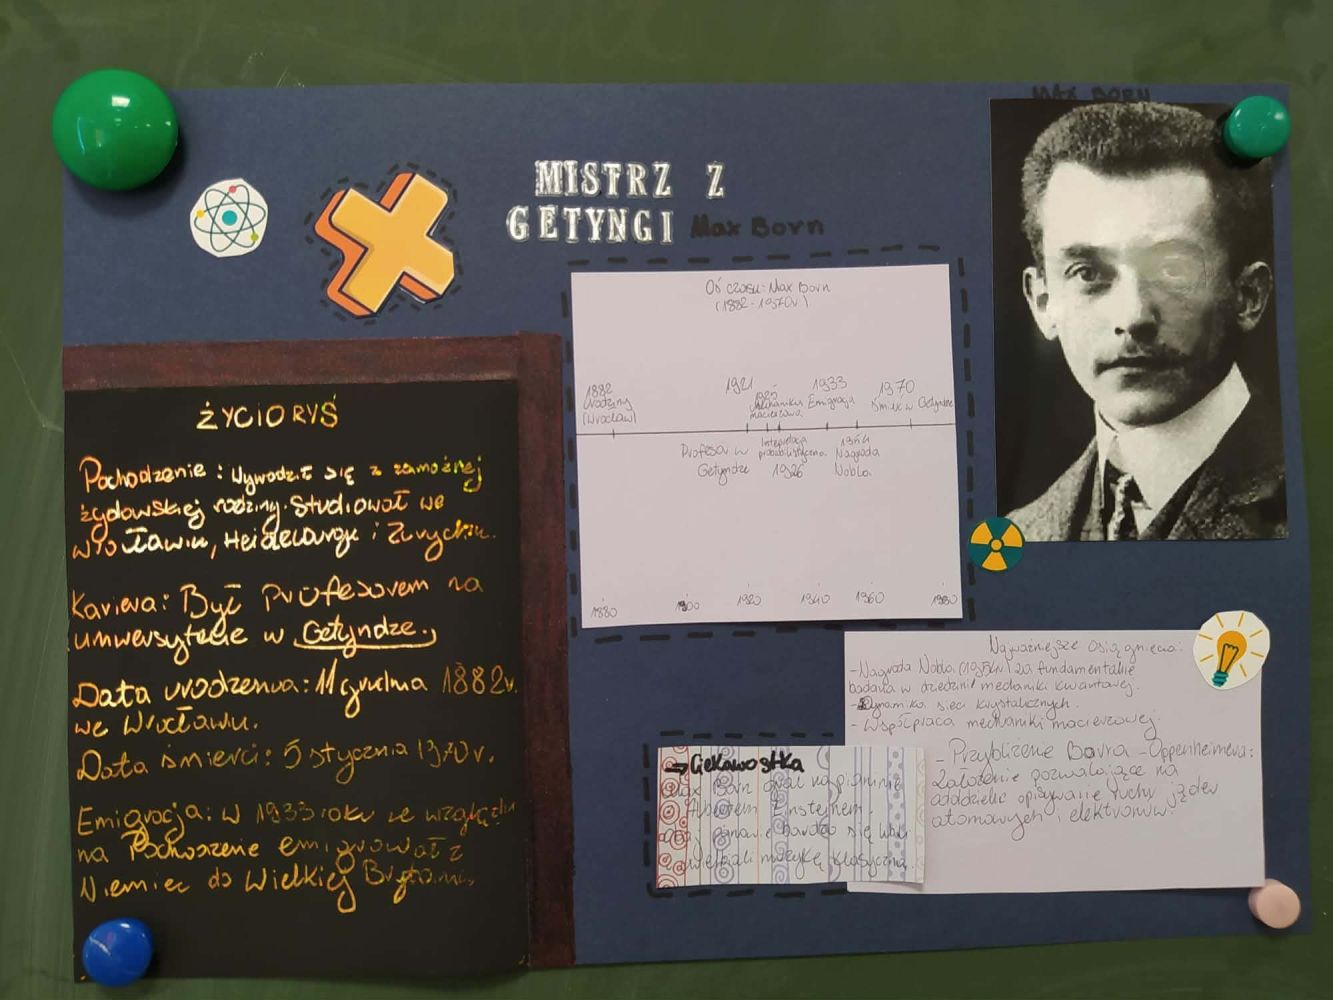 MAX BORN
MISTRZ Z
GETYNGI Max Born
Oś czasu: Max Born
(1882-1970r.)
1882
Urodziny
(Wrocław)
1921
1925
Mechanika
macierzowa
1933
Emigracja
1970
Śmierć w Getyndze
Profesor w
Getyndze
Interpretacja
probabilistyczna
1926
1954
Nagroda
Nobla
1880 1900 1920 1940 1960 1980
ŻYCIORYŚ
Pochodzenie: Wywodził się z zamożnej
żydowskiej rodziny. Studiował we
wrocławiu, Heidelbergu i Zurychu.
Kariera: Był Profesorem na
uniwersytecie w Getyndze.
Data urodzenia: 11 grudnia 1882r.
we Wrocławiu.
Data śmierci: 5 stycznia 1970r.
Emigracja: W 1933 roku ze względu
na Pochodzenie emigrował z
Niemiec do Wielkiej Brytanii.
Najważniejsze osiągnięcia:
-Nagroda Nobla (1954r) za fundamentalne
badania w dziedzinie mechaniki kwantowej.
-Dynamika sieci krystalicznych.
-Współpraca mechaniki macierzowej.
-Przybliżenie Borna-Oppenheimera:
Założenie pozwalające na
oddzielne opisywanie ruchu jąder
atomowych i elektronów.
→Ciekawostka
Max Born grał na pianinie
Albertem Einsteinem.
bardzo się
muzykę klasyczną.